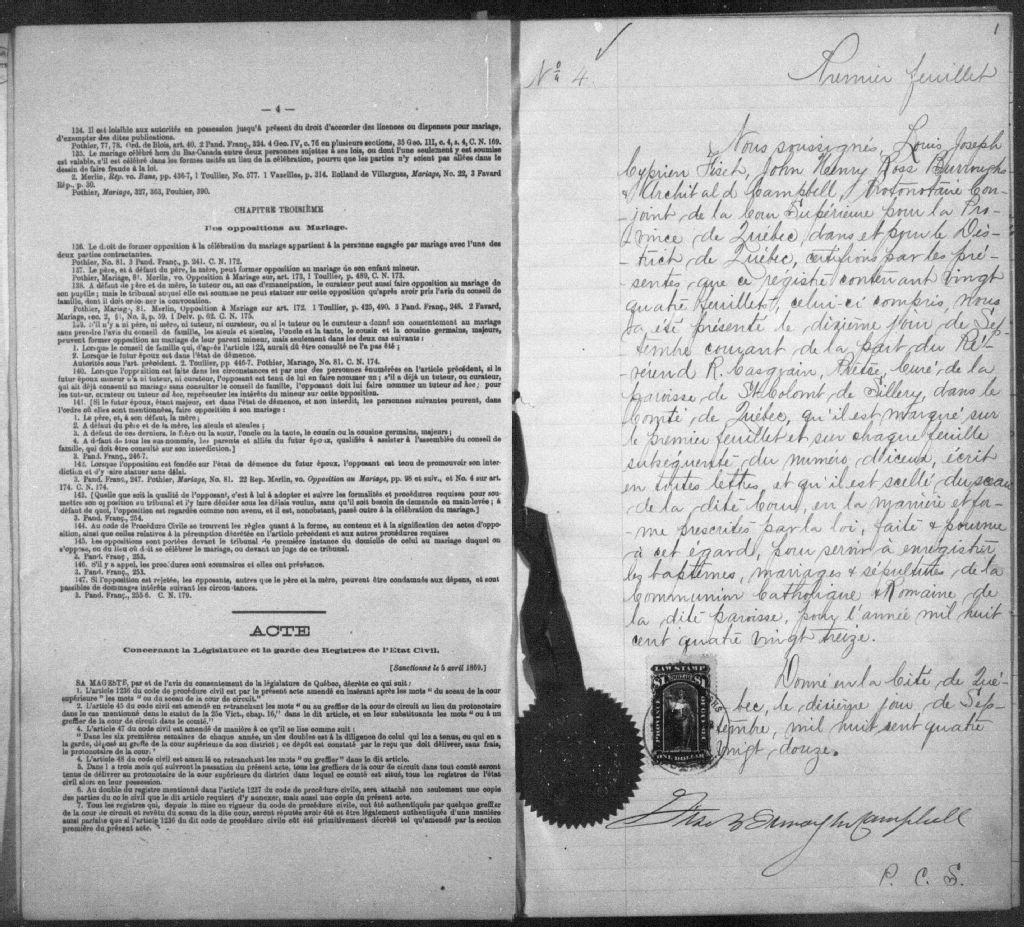 — 4 —
134. Il est loisible aux autorités en possession jusqu'à présent du droit d'accorder des licences ou dispenses pour mariage,
d'exempter des dites publications.
Pothier, 77, 78. Ord. de Blois, art. 40. 2 Pand. Franç., 324. 4 Geo. IV, c. 76 en plusieurs sections, 35 Geo. III, c. 4, s. 4, C. N. 169.
135. Le mariage célébré hors du Bas-Canada entre deux personnes sujettes à ses lois, ou dont l'une seulement y est soumise
est valable, s'il est célébré dans les formes usitées au lieu de la célébration, pourvu que les parties n'y soient pas allées dans le
dessein de faire fraude à la loi.
2. Merlin, Rép. vo. Bans, pp. 436-7, 1 Toullier, No. 577. 1 Vazeilles, p. 314. Rolland de Villargues, Mariage, No. 22, 3 Favard
Rép., p. 30.
Pothier, Mariage, 327, 363, Pouhier, 390.
CHAPITRE TROISIÈME
Des oppositions au Mariage.
136. Le droit de former opposition à la célébration du mariage appartient à la personne engagée par mariage avec l'une des
deux parties contractantes.
Pothier, No. 81. 3 Pand. Franç., p. 241. C. N. 172.
137. Le père, et à défaut du père, la mère, peut former opposition au mariage de son enfant mineur.
Pothier, Mariage, 81. Merlin, vo. Opposition à Mariage sur art. 173, 1 Toullier, p. 489, C. N. 173.
138. A défaut de père et de mère, le tuteur ou, au cas d'émancipation, le curateur peut aussi faire opposition au mariage de
son pupille; mais le tribunal auquel elle est soumise ne peut statuer sur cette opposition qu'après avoir pris l'avis du conseil de
famille, dont il doit ordonner la convocation.
Pothier, Mariage, 81. Merlin, Opposition à Mariage sur art. 172. 1 Toullier, p. 425, 490. 3 Pand. Franç., 248. 2 Favard,
Mariage, sec. 2, §1, No. 3, p. 59. 1 Delv. p. 62. C. N. 175.
139. S'il n'y a ni père, ni mère, ni tuteur, ni curateur, ou si le tuteur ou le curateur a donné son consentement au mariage
sans prendre l'avis du conseil de famille, les aïeuls et aïeules, l'oncle et la tante, le cousin et la cousine germains, majeurs,
peuvent former opposition au mariage de leur parent mineur, mais seulement dans les deux cas suivants:
1. Lorsque le conseil de famille qui, d'après l'article 122, aurait dû être consulté ne l'a pas été;
2. Lorsque le futur époux est dans l'état de démence.
Autorités sous l'art. précédent. 2. Toullier, pp. 446-7. Pothier, Mariage, No. 81. C. N. 174.
140. Lorsque l'opposition est faite dans les circonstances et par une des personnes énumérées en l'article précédent, si le
futur époux mineur n'a ni tuteur, ni curateur, l'opposant est tenu de lui en faire nommer un; s'il a déjà un tuteur, ou curateur,
qui ait déjà consenti au mariage sans consulter le conseil de famille, l'opposant doit lui faire nommer un tuteur ad hoc; pour
les tuteur, curateur ou tuteur ad hoc, représenter les intérêts du mineur sur cette opposition.
141. [Si le futur époux, étant majeur, est dans l'état de démence, et non interdit, les personnes suivantes peuvent, dans
l'ordre où elles sont mentionnées, faire opposition à son mariage:
1. Le père, et, à son défaut, la mère;
2. A défaut du père et de la mère, les aïeuls et aïeules;
3. A défaut de ces derniers, le frère ou la sœur, l'oncle ou la tante, le cousin ou la cousine germains, majeurs;
4. A défaut de tous les sus-nommés, les parents et alliés du futur époux, qualifiés à assister à l'assemblée du conseil de
famille, qui doit être consulté sur son interdiction.]
3. Pand. Franç., 246-7.
142. Lorsque l'opposition est fondée sur l'état de démence du futur époux, l'opposant est tenu de promouvoir son inter-
diction et d'y faire statuer sans délai.
3. Pand. Franç., 247. Pothier, Mariage, No. 81. 22 Rep. Merlin, vo. Opposition au Mariage, pp. 98 et suiv., et No. 4 sur art.
174. C. N. 174.
143. [Quelle que soit la qualité de l'opposant, c'est à lui à adopter et suivre les formalités et procédures requises pour sou-
mettre son opposition au tribunal et l'y faire décider sous les délais voulus, sans qu'il soit besoin de demande en main-levée; à
défaut de quoi, l'opposition est regardée comme non avenue, et il est, nonobstant, passé outre à la célébration du mariage.]
3. Pand. Franç., 254.
144. Au code de Procédure Civile se trouvent les règles quant à la forme, au contenu et à la signification des actes d'oppo-
sition, ainsi que celles relatives à la péremption décrétée en l'article précédent et aux autres procédures requises
145. Les oppositions sont portées devant le tribunal de première instance du domicile de celui au mariage duquel on
s'oppose, ou du lieu où doit se célébrer le mariage, ou devant un juge de ce tribunal.
3. Pand. Franç., 253.
146. S'il y a appel, les procédures sont sommaires et elles ont préséance.
3. Pand. Franç., 253.
147. Si l'opposition est rejetée, les opposants, autres que le père et la mère, peuvent être condamnés aux dépens, et sont
passibles de dommages intérêts suivant les circonstances.
3. Pand. Franç., 255-6. C. N. 179.
ACTE
Concernant la Législature et la garde des Registres de l'Etat Civil.
[Sanctionné le 5 avril 1869.]
SA MAGESTÉ, par et de l'avis du consentement de la législature de Québec, décrète ce qui suit:
1. L'article 1236 du code de procédure civil est par le présent acte amendé en insérant après les mots "du sceau de la cour
supérieure" les mots "ou du sceau de la cour de circuit."
2. L'article 45 du code civil est amendé en retranchant les mots "ou au greffier de la cour de circuit au lieu du protonotaire
dans le cas mentionné dans le statut de la 25e Vict., chap. 16," dans le dit article, et en leur substituant les mots "ou à un
greffier de la cour de circuit dans le comté."
4. L'article 47 du code civil est amendé de manière à ce qu'il se lise comme suit:
"Dans les six premières semaines de chaque année, un des doubles est à la diligence de celui qui les a tenus, ou qui en a
la garde, déposé au greffe de la cour supérieure de son district; ce dépôt est constaté par le reçu que doit délivrer, sans frais,
le protonotaire de la cour."
4. L'article 48 du code civil est amendé en retranchant les mots "ou greffier" dans le dit article.
5. Dans les trois mois qui suivront la passation du présent acte, tous les greffiers de la cour de circuit dans tout comté seront
tenus de délivrer au protonotaire de la cour supérieure du district dans lequel ce comté est situé, tous les registres de l'état
civil alors en leur possession.
6. Au double du registre mentionné dans l'article 1227 du code de procédure civile, sera attaché non seulement une copie
des parties du code civil que le dit article requiert d'y annexer, mais aussi une copie du présent acte.
7. Tous les registres qui, depuis la mise en vigueur du code de procédure civile, ont été authentiqués par quelque greffier
de la cour de circuit et revêtu du sceau de la dite cour, seront réputés avoir été et être légalement authentiqués d'une manière
aussi parfaite que si l'article 1236 du dit code de procédure civile eût été primitivement décrété tel qu'amendé par la section
première du présent acte.
1
No 4
Premier feuillet
Nous soussignés, Louis Joseph
Cyprien Fiset, John Henry Ross Burroughs
& Archibald Campbell, Protonotaire Con-
-joint de la Cour Supérieure pour la Pro-
-vince de Québec, dans et pour le Dis-
-trict de Québec, certifions par les pré-
-sentes que ce registre contenant vingt
quatre feuillets, celui-ci compris, nous
a été présenté le dixième jour de Sep-
-tembre courant de la part du Ré-
-vérend R. Casgrain, Prêtre, Curé de la
paroisse de St Colomb de Sillery, dans le
Comté de Québec, qu'il est marqué sur
le premier feuillet et sur chaque feuille
subséquente du numéro d'iceux, écrit
en toutes lettres, et qu'il est scellé du sceau
de la dite Cour, en la manière et for-
-me prescrites par la loi, faite & pourvue
à cet égard, pour servir à enregistrer
les baptêmes, mariages & sépultures de la
Communion Catholique & Romaine de
la dite paroisse, pour l'année mil huit
cent quatre vingt treize.
Donné en la Cité de Qué-
-bec, le dixième jour de Sep-
-tembre, mil huit cent quatre
vingt douze.
LAW STAMP
$1 $1
PROVINCE OF QUEBEC
ONE DOLLAR
Fiset Burroughs Campbell
P. C. S.